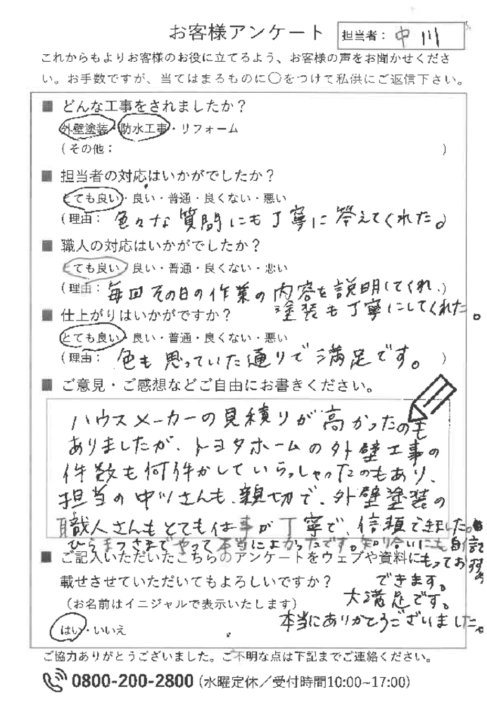 お客様アンケート 担当者：中川
これからもよりお客様のお役に立てるよう、お客様の声をお聞かせくださ
い。お手数ですが、当てはまるものに○をつけて私供にご返信下さい。
■ どんな工事をされましたか？
外壁塗装・防水工事・リフォーム
（その他： ）
■ 担当者の対応はいかがでしたか？
とても良い・良い・普通・良くない・悪い
（理由：色々な質問にも丁寧に答えてくれた。）
■ 職人の対応はいかがでしたか？
とても良い・良い・普通・良くない・悪い
（理由：毎回その日の作業の内容を説明してくれ、）
塗装も丁寧にしてくれた。
■ 仕上がりはいかがですか？
とても良い・良い・普通・良くない・悪い
（理由：色も思っていた通りで満足です。）
■ ご意見・ご感想などご自由にお書きください。
ハウスメーカーの見積りが高かったのも
ありましたが、トヨタホームの外壁工事の
件数も何件かしていらっしゃったのもあり、
担当の中川さんも、親切で、外壁塗装の
職人さんもとても仕事が丁寧で、信頼できました。
ひらまつさまでやって本当によかったです。知り合いにも
■ ご記入いただいたこちらのアンケートをウェブや資料に
載せさせていただいてもよろしいですか？
できます。
（お名前はイニシャルで表示いたします）
大満足です。
本当にありがとうございました。
はい・いいえ
ご協力ありがとうございました。ご不明な点は下記までご連絡ください。
0800-200-2800（水曜定休／受付時間10:00~17:00）